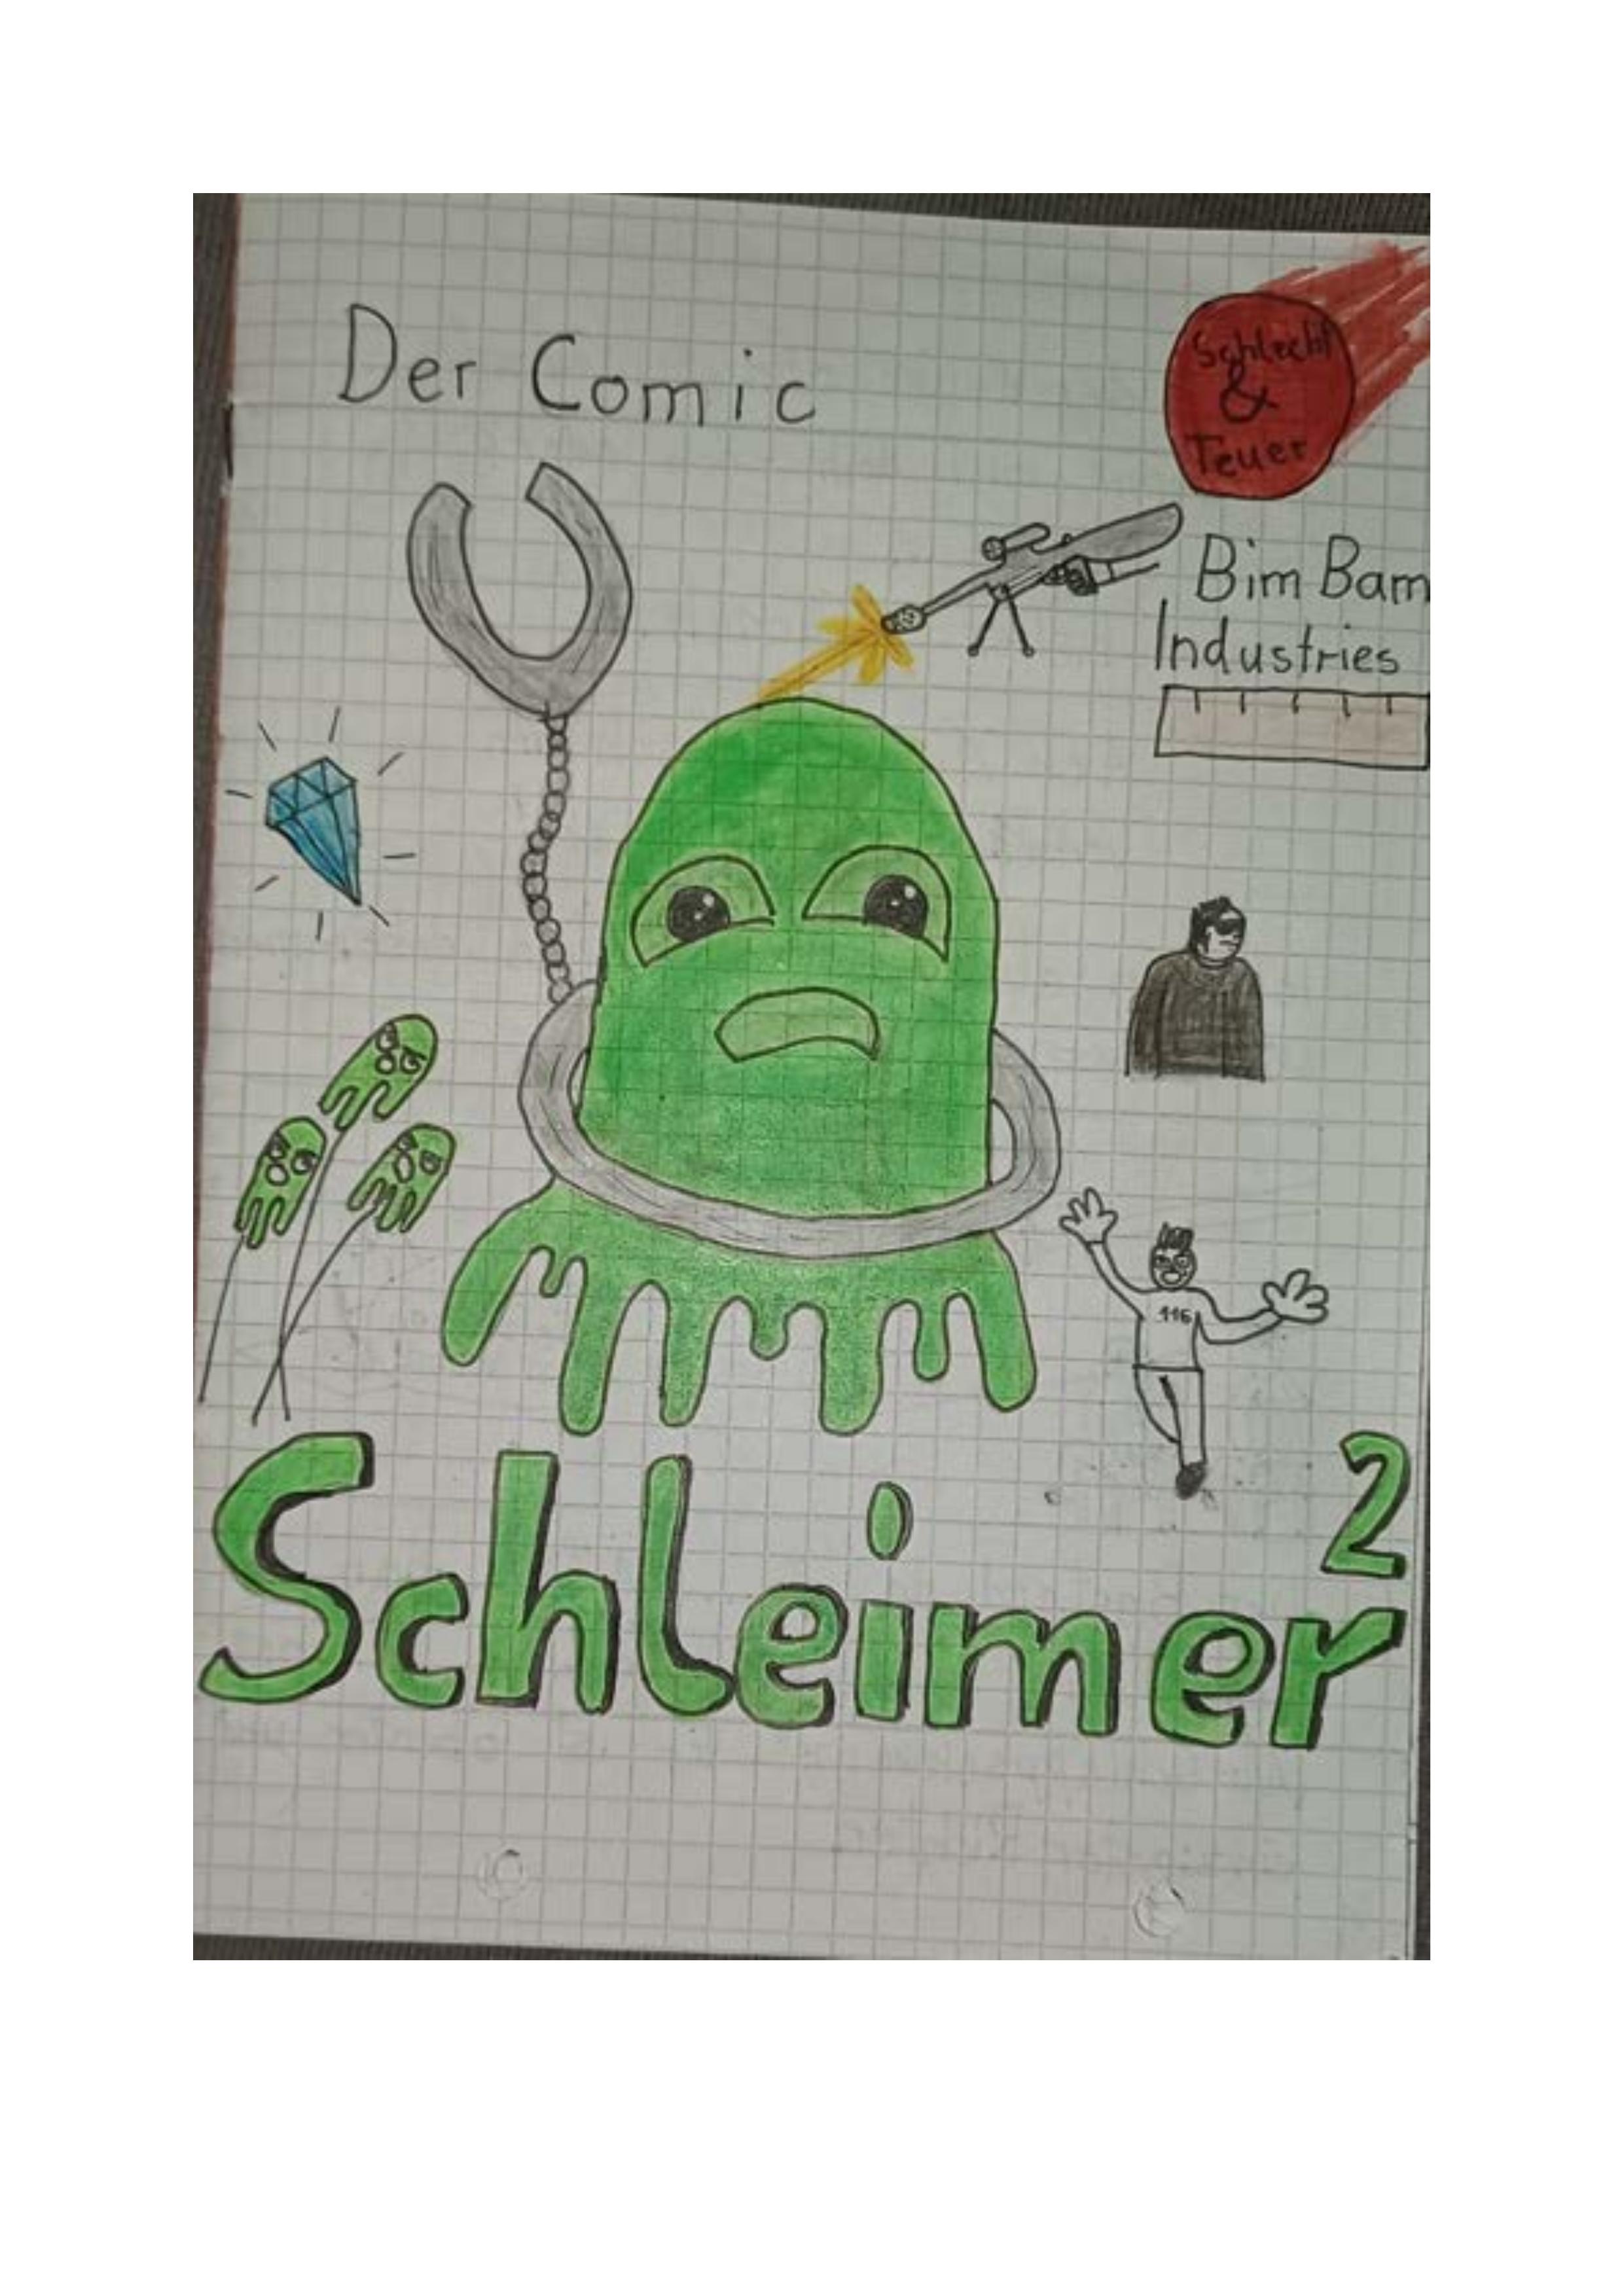 Der Comic
Schlecht
&
Teuer
Bim Bam
Industries
116
2
Schleimer